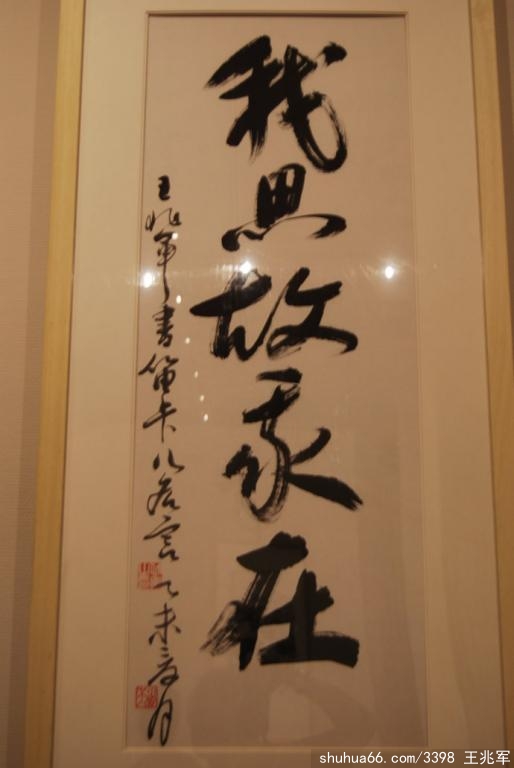 我思故我在
王兆军書笛卡儿名言 乙未月
shuhua66.com/3398 王兆军